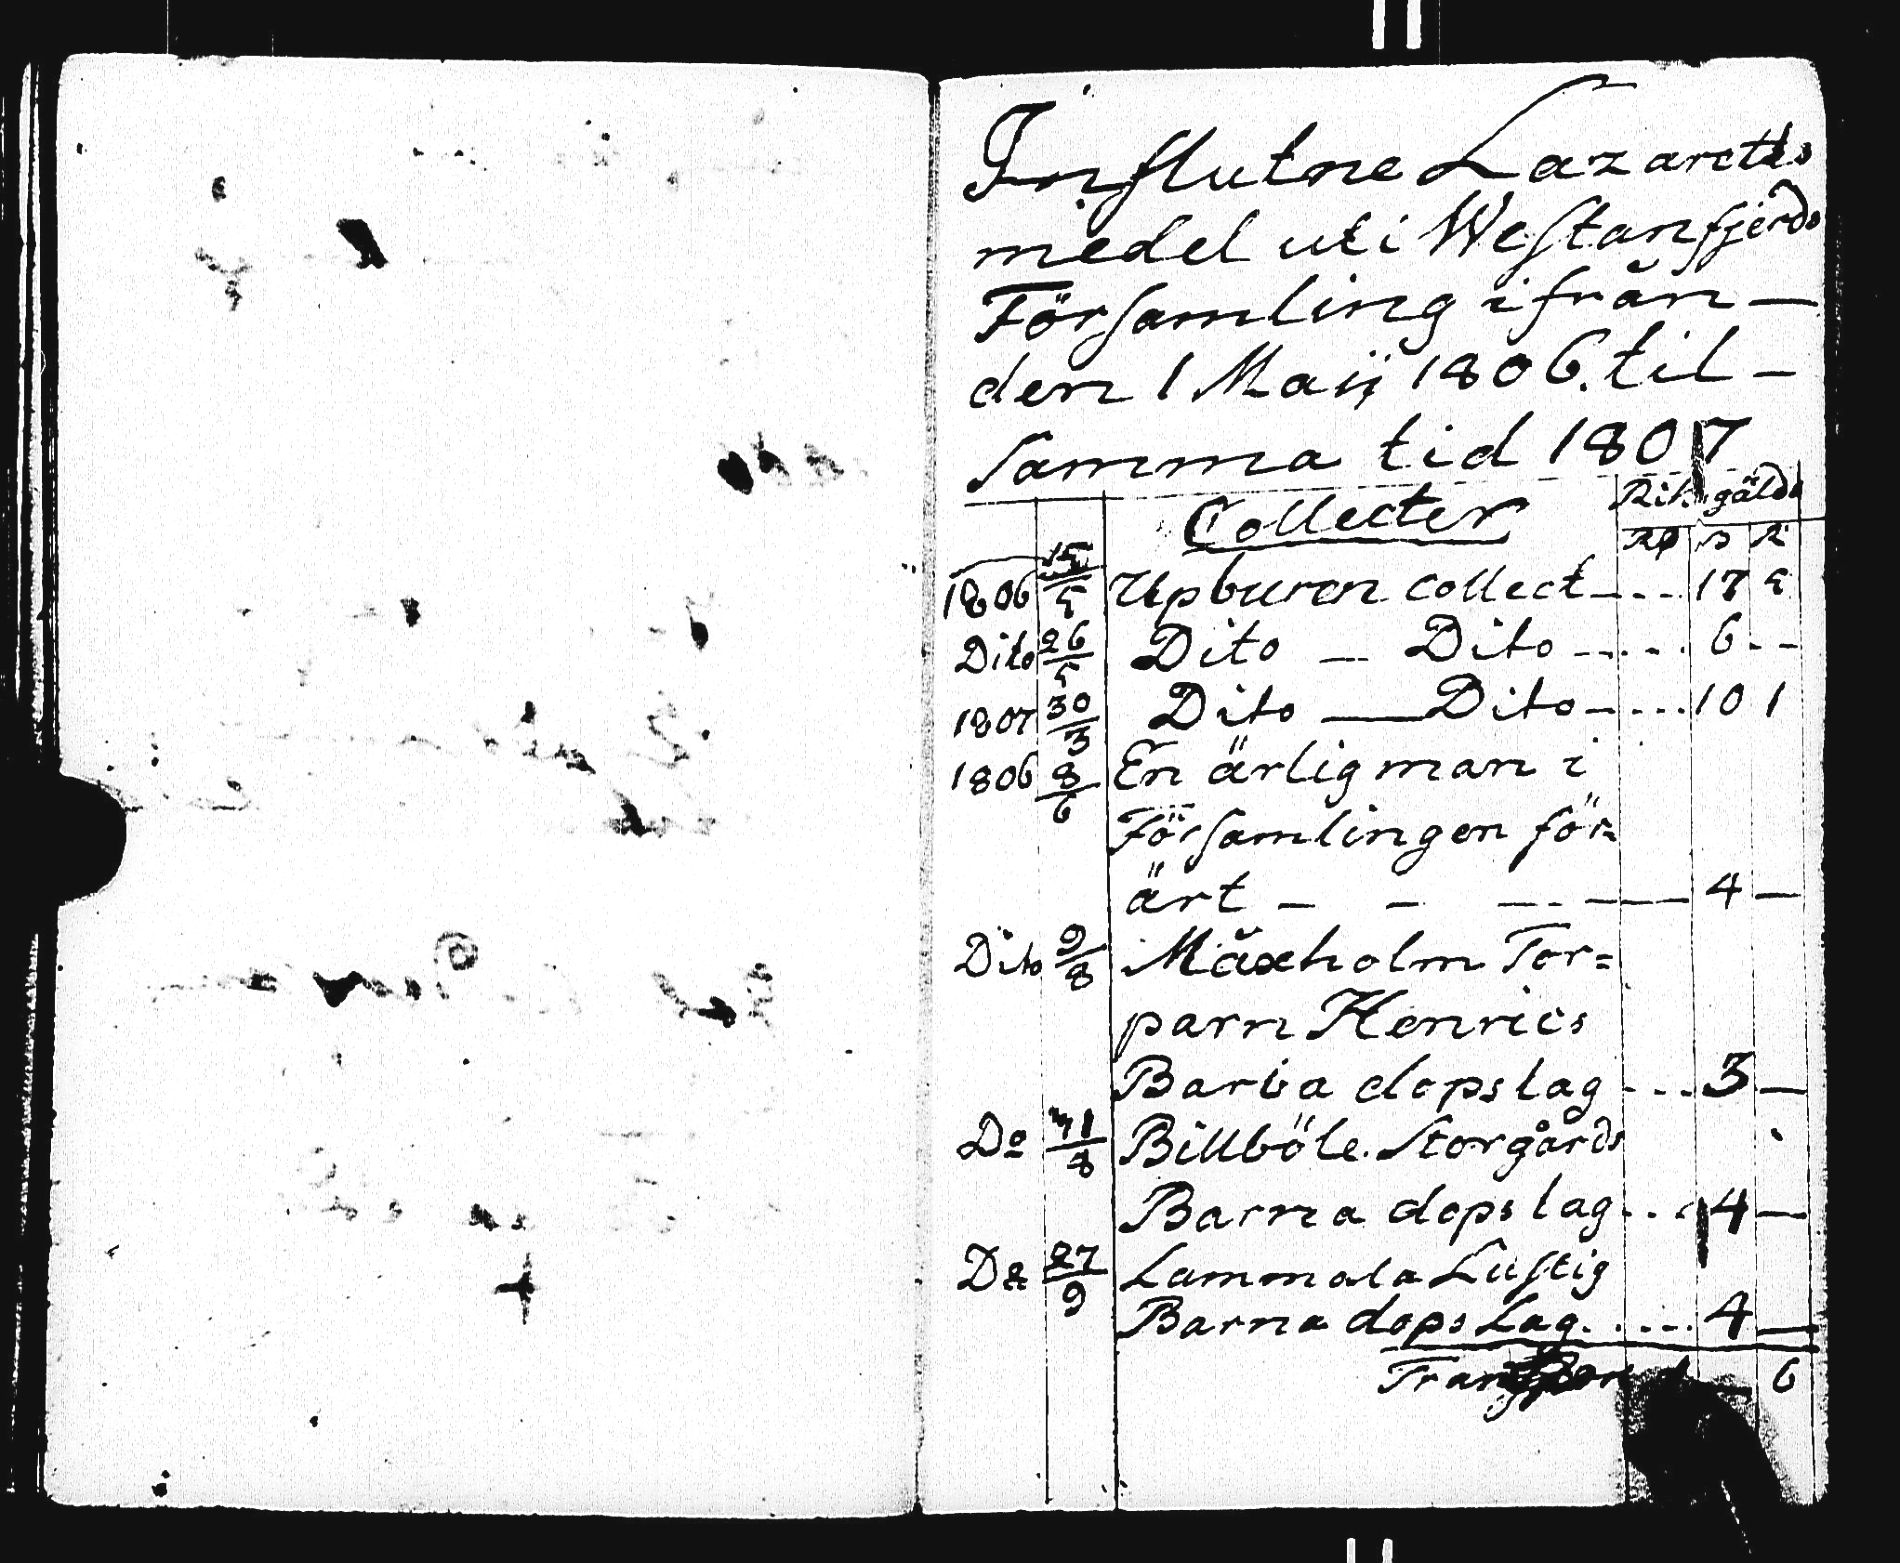 Influtne Lazaretts
medel uti Westanfjerds
Församling ifrån —
den 1 Maij 1806. til —
samma tid 1807
Collecter Riksgälds
Rd s R
1806 15/5 Upburen collect - - - 17
Dito 26/5 Dito — Dito - - - - 6 - -
1807 30/3 Dito — Dito - - - 10 1
1806 8/6 En ärlig man i
Församlingen för=
ärt — — — — 4 —
Dito 9/8 Måxholm Tor=
parn Henrics
Barna dopslag - - - 3 —
Do /8 Billböle Storgårds
Barna dopslag - - - 4 —
Do 27/9 Lammala Lustig
Barna dops Lag - - - - 4 —
Transport 6